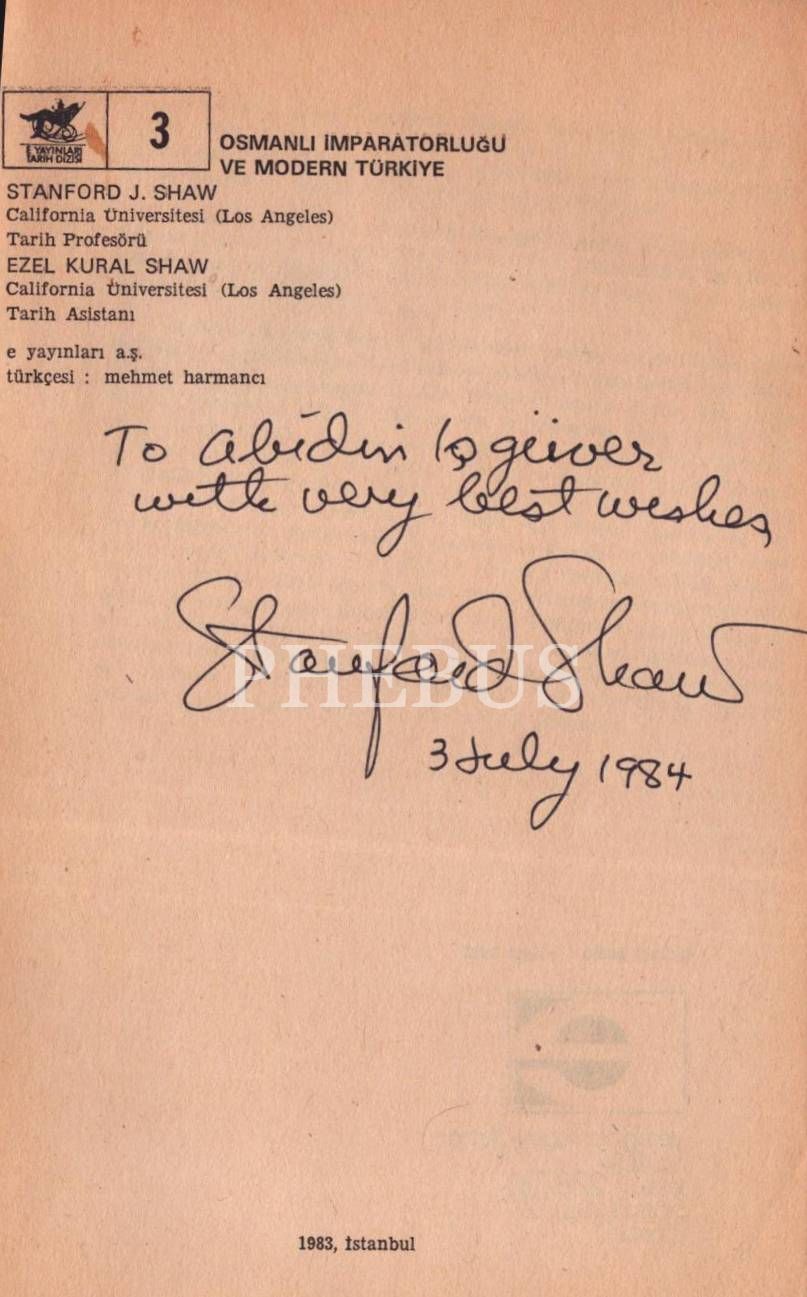 E YAYINLARI
TARİH DİZİSİ
3
OSMANLI İMPARATORLUĞU
VE MODERN TÜRKİYE
STANFORD J. SHAW
California Üniversitesi (Los Angeles)
Tarih Profesörü
EZEL KURAL SHAW
California Üniversitesi (Los Angeles)
Tarih Asistanı
e yayınları a.ş.
türkçesi : mehmet harmancı
To Abidin İşgüver
with very best wishes,
Stanford Shaw
PHEBUS
3 July 1984
1983, İstanbul